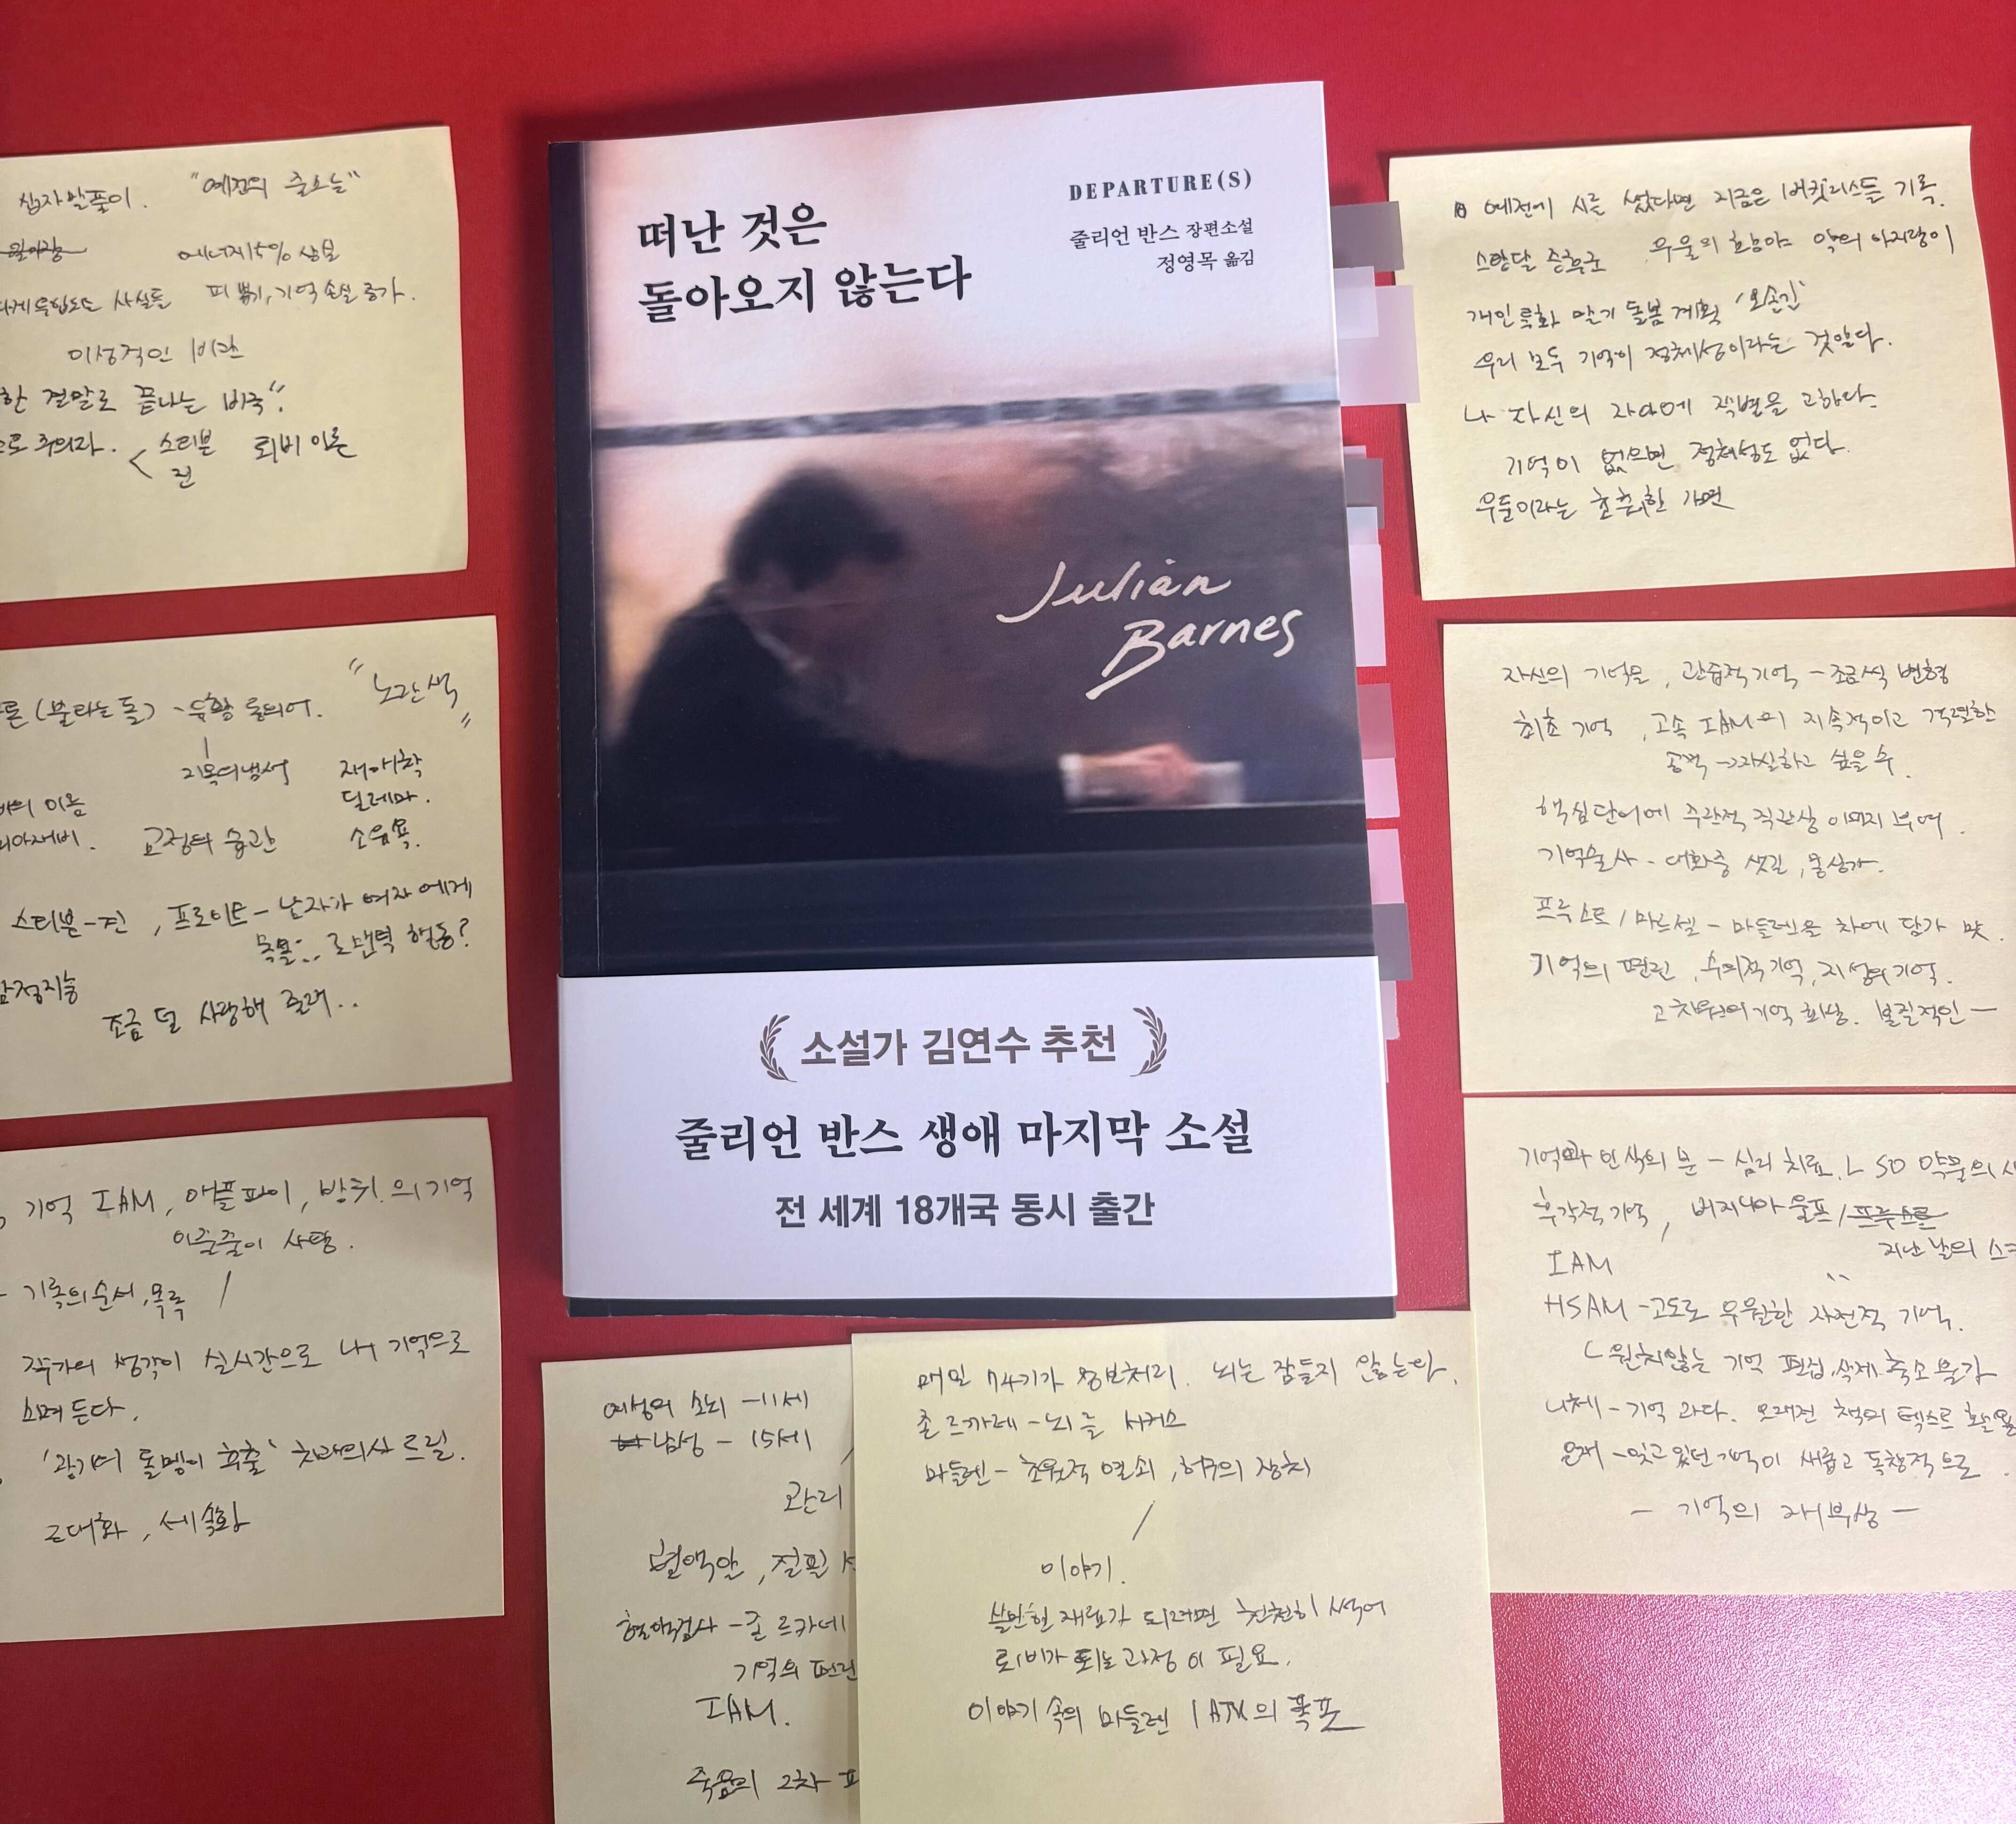 DEPARTURE(S)
떠난 것은
돌아오지 않는다
줄리언 반스 장편소설
정영목 옮김
Julian
Barnes
소설가 김연수 추천
줄리언 반스 생애 마지막 소설
전 세계 18개국 동시 출간
십자말풀이. "예전의 줄오늘"
에너지 5% 상실
사실들 피 뽑기, 기억 손실 증가.
이성적인 비관
한 결말로 끝나는 비극".
주의자. < 스티븐 뢰비 이론
진
(불타는 돌) - 유황 "노란색"
재매학
의 이름 딜레마.
교정의 습관
스티븐-진, 프로이트 - 남자가 여자에게
행동?
감정지능
조금 덜 사랑해 줄래..
기억 IAM, 애플파이, 방귀의 기억
사탕.
- 기록의 순서, 목록
작가의 생각이 실시간으로 내 기억으로
스며든다.
'광기어 돌멩이 추출'
근대화, 세속화
예전에 시를 썼다면 지금은 버킷리스트를 기록.
스탕달 증후군 우울의 약의 아지랑이
개인 말기 돌봄 계획
우리 모두 기억이 정체성이라는 것 안다.
나 자신의 자아에 작별을 고하다.
기억이 없으면 정체성도 없다.
자신의 기억을, 관습적 기억 - 조금씩 변형
최초 기억, 고속 IAM의 지속적이고 격렬한
공격 → 자살하고 싶을 수.
핵심단어에 주관적 직관상 이미지 부여.
기억술사 - 대화중 샛길,
프루스트/마르셀 - 마들렌을 차에 담가 맛.
기억의 편린, 수의적 기억, 지성의 기억.
고차원의 기억 회상. 본질적인 -
기억과 인식의 문 - 심리 치료. LSD 약물의
후각적 기억, 버지니아 울프/
지난 날의 스
IAM
HSAM - 고도로 우월한 자전적 기억.
ㄴ 원치않는 기억 편집, 삭제, 축소 불가
니체 - 기억 과다. 오래전 책의 텍스트
- 잊고 있던 기억이 새롭고 독창적으로
- 기억의 재부상 -
여성의 소뇌 - 11세
남성 - 15세
관리
혈액암, 절필
혈액검사 - 존 르카레
기억의 편린
IAM.
죽음의 2차
매일 74기가 정보처리. 뇌는 잠들지 않는다.
존 르카레 - 뇌를
마들렌 - 초월적 열쇠, 허구의 장치
이야기.
쓸만한 재료가 되려면 천천히 썩어
퇴비가 되는 과정이 필요.
이야기 속의 마들렌 IAM의 폭포